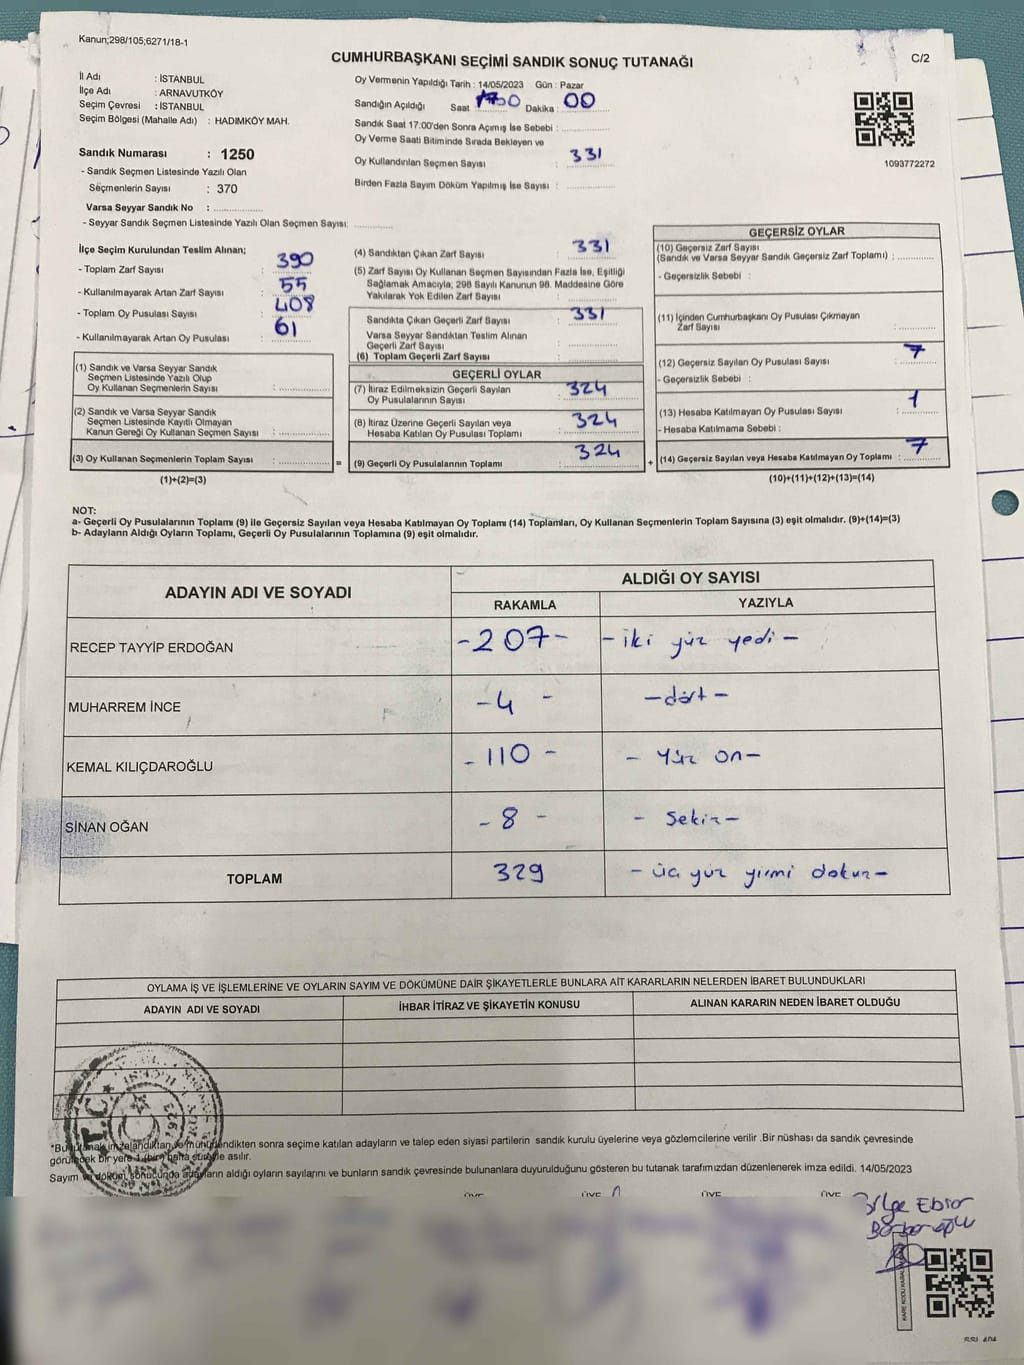 Kanun;298/105;6271/18-1
CUMHURBAŞKANI SEÇİMİ SANDIK SONUÇ TUTANAĞI
C/2
İl Adı : İSTANBUL
İlçe Adı : ARNAVUTKÖY
Seçim Çevresi : İSTANBUL
Seçim Bölgesi (Mahalle Adı) : HADIMKÖY MAH.
Sandık Numarası : 1250
- Sandık Seçmen Listesinde Yazılı Olan
Seçmenlerin Sayısı : 370
Varsa Seyyar Sandık No :
- Seyyar Sandık Seçmen Listesinde Yazılı Olan Seçmen Sayısı:
Oy Vermenin Yapıldığı Tarih : 14/05/2023 Gün : Pazar
Sandığın Açıldığı Saat Dakika : 00
Sandık Saat 17:00'den Sonra Açımış İse Sebebi :
Oy Verme Saati Bitiminde Sırada Bekleyen ve
Oy Kullandırılan Seçmen Sayısı : 331
Birden Fazla Sayım Döküm Yapılmış İse Sayısı :
1093772272
İlçe Seçim Kurulundan Teslim Alınan;
- Toplam Zarf Sayısı : 390
- Kullanılmayarak Artan Zarf Sayısı : 55
- Toplam Oy Pusulası Sayısı : 408
- Kullanılmayarak Artan Oy Pusulası : 61
(1) Sandık ve Varsa Seyyar Sandık
Seçmen Listesinde Yazılı Olup
Oy Kullanan Seçmenlerin Sayısı :
(2) Sandık ve Varsa Seyyar Sandık
Seçmen Listesinde Kayıtlı Olmayan
Kanun Gereği Oy Kullanan Seçmen Sayısı :
(3) Oy Kullanan Seçmenlerin Toplam Sayısı :
(1)+(2)=(3)
=
(4) Sandıktan Çıkan Zarf Sayısı : 331
(5) Zarf Sayısı Oy Kullanan Seçmen Sayısından Fazla İse, Eşitliği
Sağlamak Amacıyla, 298 Sayılı Kanunun 98. Maddesine Göre
Yakılarak Yok Edilen Zarf Sayısı :
Sandıkta Çıkan Geçerli Zarf Sayısı : 331
Varsa Seyyar Sandıktan Teslim Alınan
Geçerli Zarf Sayısı :
(6) Toplam Geçerli Zarf Sayısı :
GEÇERLİ OYLAR
(7) İtiraz Edilmeksizin Geçerli Sayılan
Oy Pusulalarının Sayısı : 324
(8) İtiraz Üzerine Geçerli Sayılan veya
Hesaba Katılan Oy Pusulası Toplamı : 324
(9) Geçerli Oy Pusulalarının Toplamı : 324
+
GEÇERSİZ OYLAR
(10) Geçersiz Zarf Sayısı
(Sandık ve Varsa Seyyar Sandık Geçersiz Zarf Toplamı) :
- Geçersizlik Sebebi :
(11) İçinden Cumhurbaşkanı Oy Pusulası Çıkmayan
Zarf Sayısı :
(12) Geçersiz Sayılan Oy Pusulası Sayısı : 7
- Geçersizlik Sebebi :
(13) Hesaba Katılmayan Oy Pusulası Sayısı : 1
- Hesaba Katılmama Sebebi :
(14) Geçersiz Sayılan veya Hesaba Katılmayan Oy Toplamı : 7
(10)+(11)+(12)+(13)=(14)
NOT:
a- Geçerli Oy Pusulalarının Toplamı (9) ile Geçersiz Sayılan veya Hesaba Katılmayan Oy Toplamı (14) Toplamları, Oy Kullanan Seçmenlerin Toplam Sayısına (3) eşit olmalıdır. (9)+(14)=(3)
b- Adayların Aldığı Oyların Toplamı, Geçerli Oy Pusulalarının Toplamına (9) eşit olmalıdır.
ADAYIN ADI VE SOYADI
ALDIĞI OY SAYISI
RAKAMLA YAZIYLA
RECEP TAYYİP ERDOĞAN -207- -iki yüz yedi-
MUHARREM İNCE -4- -dört-
KEMAL KILIÇDAROĞLU -110- -Yüz on-
SİNAN OĞAN -8- -Sekiz-
TOPLAM 329 -üç yüz yirmi dokuz-
OYLAMA İŞ VE İŞLEMLERİNE VE OYLARIN SAYIM VE DÖKÜMÜNE DAİR ŞİKAYETLERLE BUNLARA AİT KARARLARIN NELERDEN İBARET BULUNDUKLARI
ADAYIN ADI VE SOYADI İHBAR İTİRAZ VE ŞİKAYETİN KONUSU ALINAN KARARIN NEDEN İBARET OLDUĞU
T.C.
*Bu tutanak imzalandıktan ve mühürlendikten sonra seçime katılan adayların ve talep eden siyasi partilerin sandık kurulu üyelerine veya gözlemcilerine verilir .Bir nüshası da sandık çevresinde
görülecek bir yere 1 (bir) hafta süreyle asılır.
Sayım ve döküm sonucunda adayların aldığı oyların sayılarını ve bunların sandık çevresinde bulunanlara duyurulduğunu gösteren bu tutanak tarafımızdan düzenlenerek imza edildi. 14/05/2023
ÜYE ÜYE ÜYE ÜYE
Bilge Ebrar